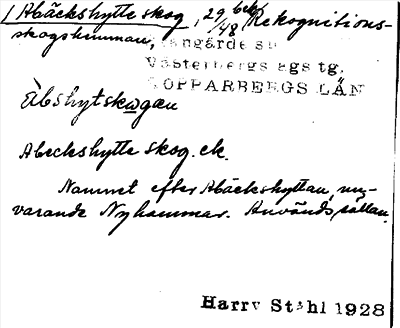 1 Abäckshytte skog, 29/48 Rekognitions-
skogshemman,
Grangärde sn
Västerbergs bgs tg.
KOPPARBERGS LÄN
Àbshytskωgæu
Abeckshytte skog. ek.
Namnet efter Abäckshyttan, nu-
varande Nyhammar. Används sällan.
Harry Ståhl 1928